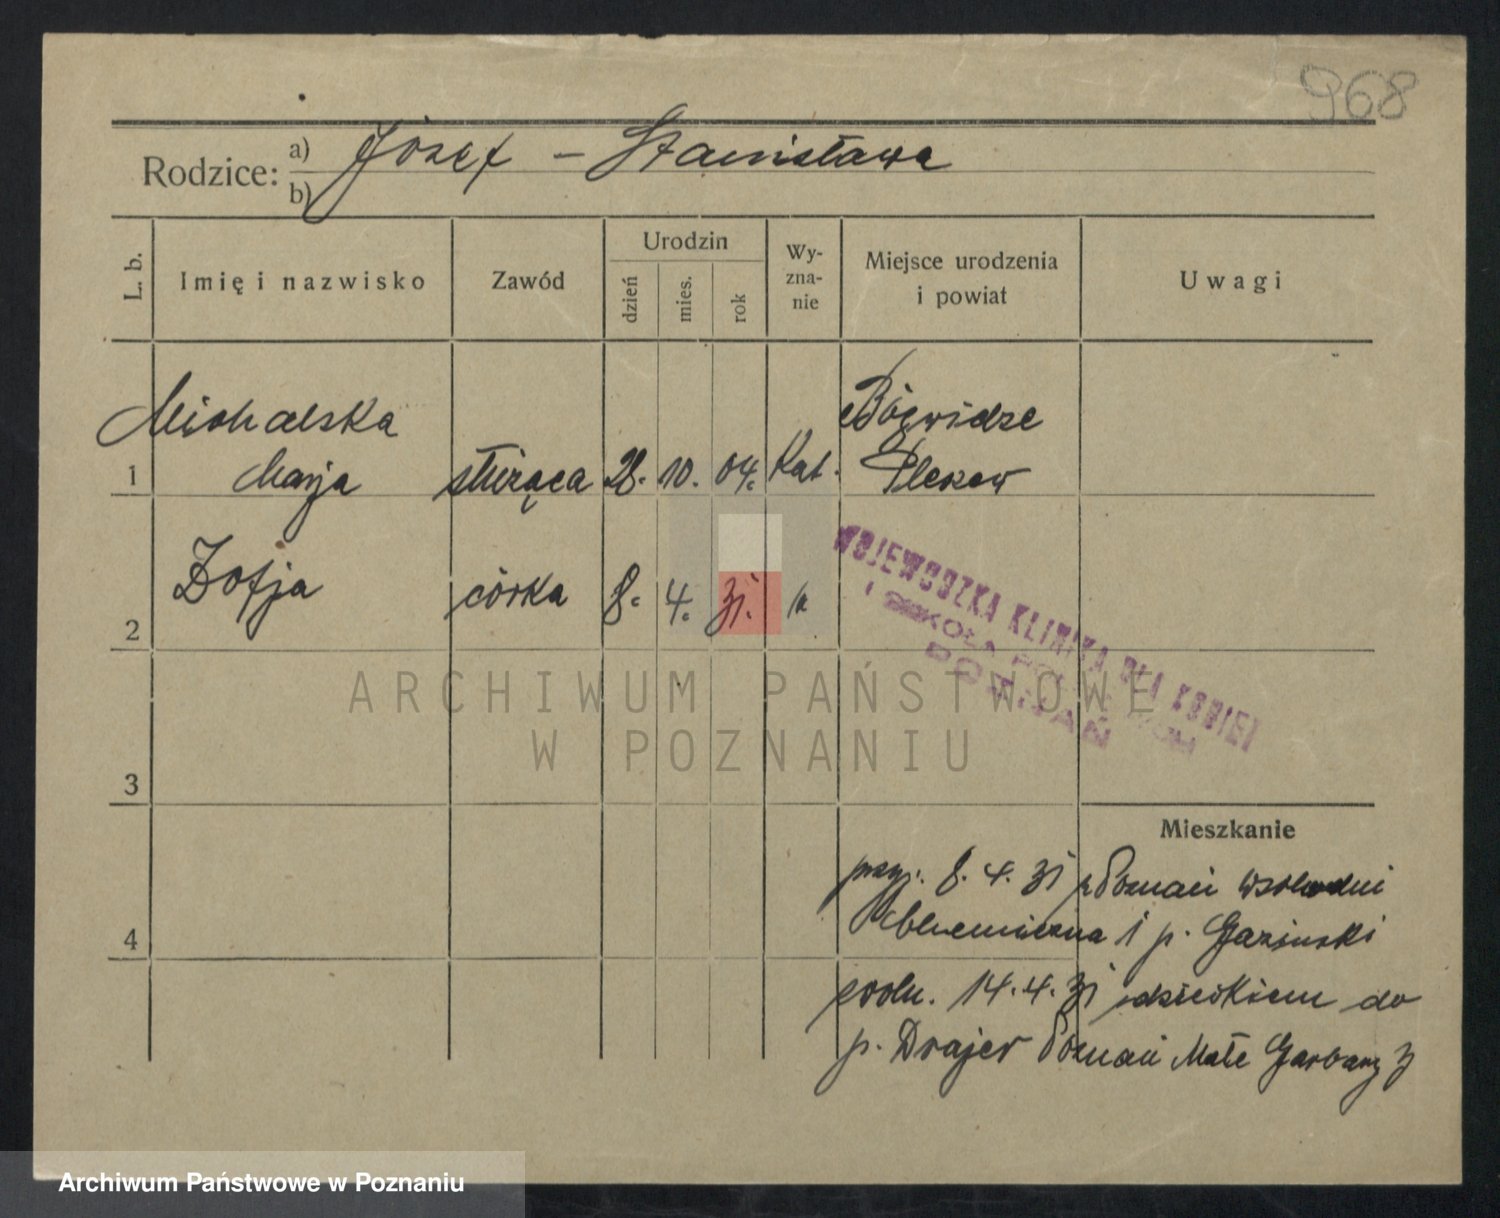 968
Rodzice: a) Józef – Stanisława
b)
L. b.
Imię i nazwisko
Zawód
Urodzin
dzień
mies.
rok
Wy-
zna-
nie
Miejsce urodzenia
i powiat
Uwagi
Michalska
Marja
1
służąca
28. 10. 04.
Kat.
Bógwidze
Pleszew
2
Zofja
córka
8. 4. 31.
WOJEWÓDZKA KLINIKA DLA KOBIET
I SZKOŁA POŁOŻNYCH
POZNAŃ
ARCHIWUM PAŃSTWOWE
W POZNANIU
3
Mieszkanie
przyj. 8. 4. 31 z Poznań wschodni
4
Chlemiczna 1 p. Gaziński
zwoln. 14. 4. 31 z dzieckiem do
p. Drajer Poznań Małe Garbary 3
Archiwum Państwowe w Poznaniu